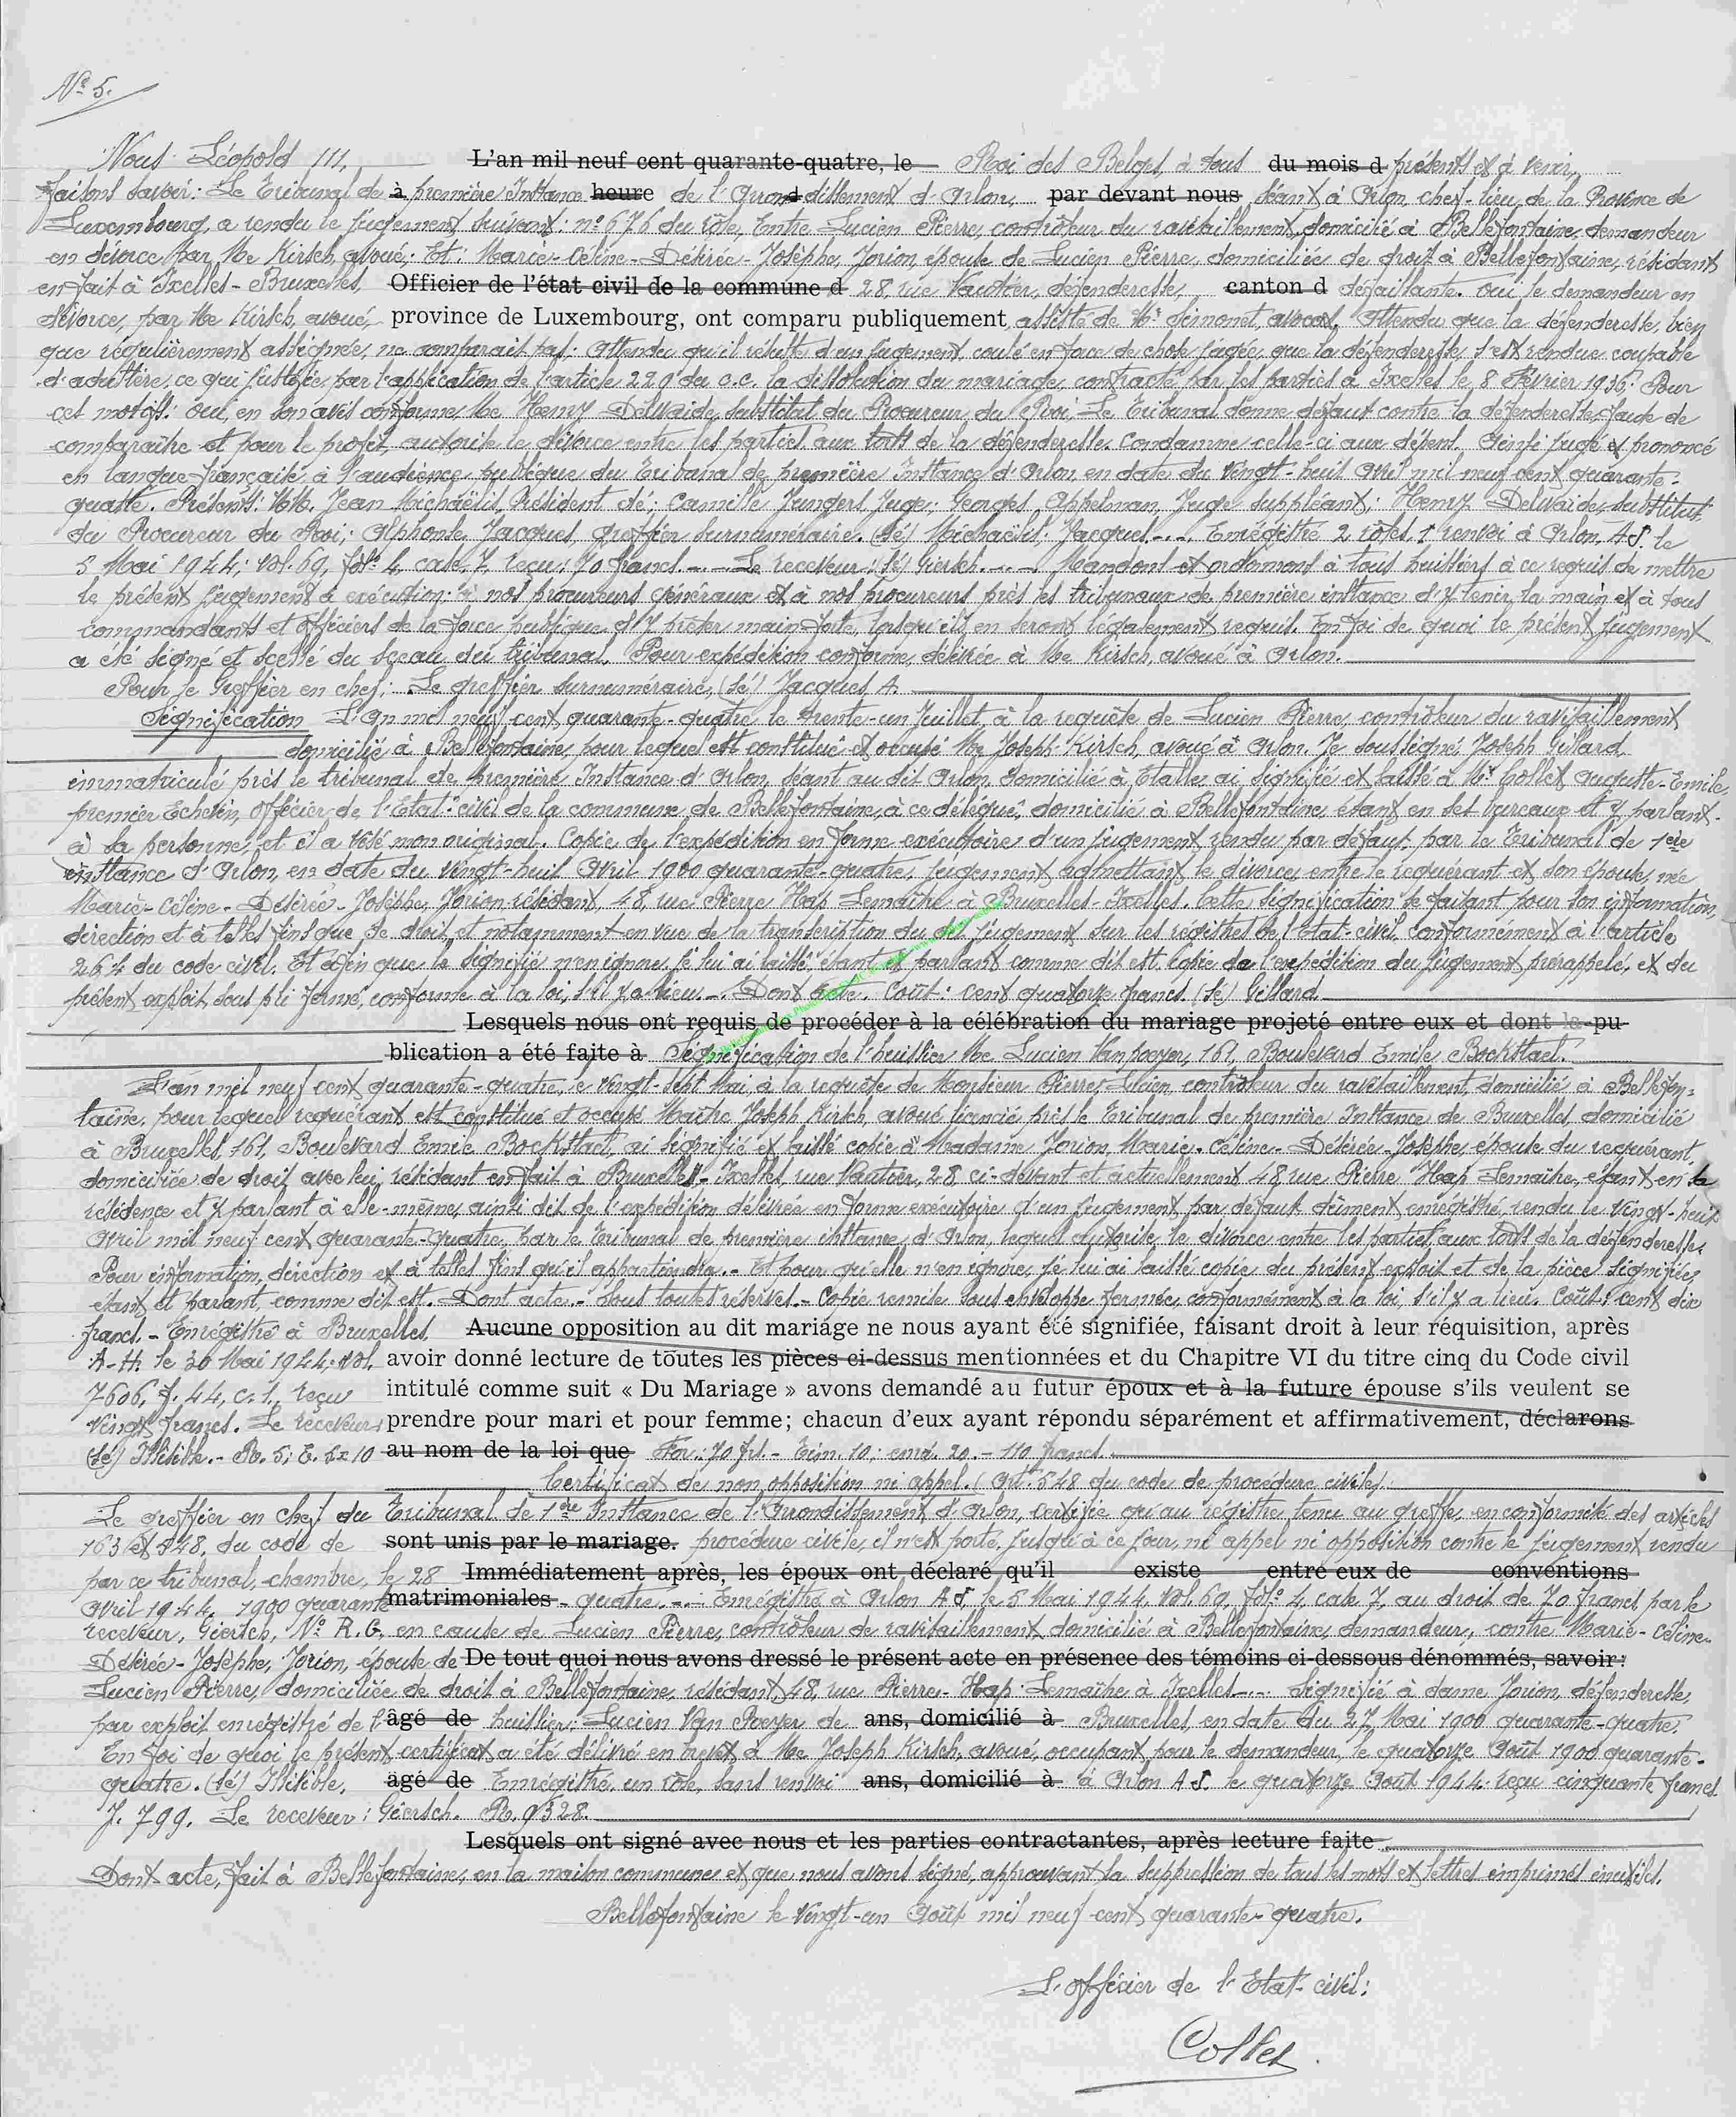 N° 5.
Nous Léopold III, L'an mil neuf cent quarante-quatre, le Roi des Belges, à tous du mois d présents et à venir,
faisons savoir: Le Tribunal de à première Instance heure de l'Arrondissement d'Arlon, par devant nous séant à Arlon, chef-lieu de la Province de
Luxembourg, a rendu le jugement suivant: n° 676 du rôle, Entre Lucien Pierre, contrôleur du ravitaillement, domicilié à Bellefontaine, demandeur
en divorce par Me Kirsch, avoué. Et: Marie-Céline-Désirée-Josèphe, Jorion, épouse de Lucien Pierre, domiciliée de droit à Bellefontaine, résidant
en fait à Ixelles-Bruxelles, Officier de l'état civil de la commune d 28, rue Vautier, défenderesse, canton d défaillante. Ouï le demandeur en
divorce, par Me Kirsch, avoué, province de Luxembourg, ont comparu publiquement assisté de Me Simonet, avocat. Attendu que la défenderesse, bien
que régulièrement assignée, ne comparait pas. Attendu qu'il résulte d'un jugement, coulé en force de chose jugée, que la défenderesse s'est rendue coupable
d'adultère, ce qui justifie, par l'application de l'article 229 du c.c. la dissolution du mariage, contracté par les parties à Ixelles le 8 Février 1936. Pour
ces motifs: ouï, en son avis conforme Me Henry Delvaide, substitut du Procureur du Roi. Le Tribunal donne défaut contre la défenderesse, faute de
comparaître et pour le profit, autorise le divorce entre les parties, aux torts de la défenderesse. Condamne celle-ci aux dépens. Ainsi jugé et prononcé
en langue française, à l'audience publique du Tribunal de première Instance d'Arlon, en date du vingt-huit Avril mil neuf cent quarante-
quatre. Présents: MM. Jean Michaëlis, Président dé; Camille Jungers, Juge; Georges Appelman, Juge suppléant; Henry Delvaide, substitut
du Procureur du Roi; Alphonse Jacques, greffier surnuméraire. (sé) Michaëlis; Jacques.-.-. Enrégistré 2 rôles, 1 renvoi à Arlon, A.J. le
5 Mai 1944; vol. 69, fol° 4, case 7, reçu: 70 francs.-.- Le receveur: (sé) Giersch.-.- Mandons et ordonnons à tous huissiers à ce requis de mettre
le présent jugement à exécution; à nos procureurs généraux et à nos procureurs près les tribunaux de première instance d'y tenir la main et à tous
commandants et officiers de la force publique d'y prêter main-forte, lorsqu'ils en seront légalement requis. En foi de quoi le présent jugement
a été signé et scellé du sceau du tribunal. Pour expédition conforme, délivrée à Me Kirsch, avoué à Arlon.
Pour le Greffier en chef: Le greffier surnuméraire, (sé) Jacques A.
Signification L'An mil neuf cent quarante-quatre le trente-un Juillet, à la requête de Lucien Pierre, contrôleur du ravitaillement
domicilié à Bellefontaine, pour lequel est constitué et occupé Me Joseph Kirsch, avoué à Arlon. Je soussigné, Joseph Gillard,
immatriculé près le tribunal de première Instance d'Arlon, séant au dit Arlon, domicilié à Etalle, ai signifié et laissé à Mr Collet Auguste-Emile,
premier Echevin, officier de l'Etat-civil de la commune de Bellefontaine, à ce délégué, domicilié à Bellefontaine, étant en ses bureaux et y parlant-
à sa personne, et il a visé mon original. Copie de l'expédition en forme exécutoire d'un jugement rendu par défaut, par le Tribunal de 1ère
instance d'Arlon, en date du vingt-huit Avril 1900 quarante-quatre, jugement admettant le divorce entre le requérant et son épouse, née
Marie-Céline-Désirée-Josèphe, Jorion, résidant, 48, rue Pierre Hap Lemaître à Bruxelles-Ixelles. Cette signification se faisant pour son information,
direction et à telles fins que de droit, et notamment en vue de la transcription du dit jugement sur les régistres de l'Etat-civil, conformément à l'article
264 du code civil. Et afin que le signifié n'en ignore, je lui ai laissé, étant et parlant comme dit est, copie de l'expédition du jugement prérappelé, et du
présent exploit, sous pli fermé, conforme à la loi, s'il y a lieu.-. Dont acte. Coût: cent quatorze francs. (sé) Gillard.
Lesquels nous ont requis de procéder à la célébration du mariage projeté entre eux et dont la pu-
blication a été faite à Signification de l'huissier Me Lucien Van Pooyer, 161, Boulevard Emile Bockstael.
L'an mil neuf cent quarante-quatre, le vingt-sept Mai, à la requête de Monsieur Pierre, Lucien, contrôleur du ravitaillement, domicilié à Bellefon-
taine, pour lequel requérant est constitué et occupé Maître Joseph Kirsch, avoué licencié près le Tribunal de première Instance de Bruxelles, domicilié
à Bruxelles, 161, Boulevard Emile Bockstael, ai signifié et laissé copie à Madame Jorion, Marie-Céline-Désirée-Josèphe, épouse du requérant,
domiciliée de droit avec lui, résidant en fait à Bruxelles-Ixelles, rue Vautier, 28 ci-devant et actuellement 48 rue Pierre Hap Lemaître, étant en sa
résidence et y parlant à elle-même, ainsi dit de l'expédition délivrée en forme exécutoire d'un jugement par défaut dûment enrégistré, rendu le vingt-huit
Avril mil neuf cent quarante-quatre, par le Tribunal de première instance, d'Arlon, lequel autorise le divorce entre les parties, aux torts de la défenderesse.
Pour information, direction et à telles fins qu'il appartiendra.- Et pour qu'elle n'en ignore, je lui ai laissé copie du présent exploit et de la pièce signifiée,
étant et parlant, comme dit est. Dont acte.- sous toutes réserves.- Copie remise sous enveloppe fermée, conformément à la loi, s'il y a lieu. Coût: cent dix
francs.- Enrégistré à Bruxelles, Aucune opposition au dit mariage ne nous ayant été signifiée, faisant droit à leur réquisition, après
A-H. le 30 Mai 1944; vol. avoir donné lecture de toutes les pièces ci-dessus mentionnées et du Chapitre VI du titre cinq du Code civil
7606, f. 44, c. 1, reçu intitulé comme suit « Du Mariage » avons demandé au futur époux et à la future épouse s'ils veulent se
vingt francs. Le receveur, prendre pour mari et pour femme; chacun d'eux ayant répondu séparément et affirmativement, déclarons
(sé) Illisible.- R. 5; E. 10 au nom de la loi que For.: 70 frs.- Tim. 10; enré. 20.- 110 francs.
Certificat de non opposition ni appel. (Art. 548 du code de procédure civile).
Le greffier en chef du Tribunal de 1ère Instance de l'Arrondissement d'Arlon, certifie qu'au régistre tenu au greffe, en conformité des articles
163 et 548, du code de sont unis par le mariage. procédure civile, il n'est porté, jusqu'à ce jour, ni appel ni opposition contre le jugement rendu
par ce tribunal, chambre, le 28 Immédiatement après, les époux ont déclaré qu'il existe entre eux de conventions
Avril 1944. 1900 quarante matrimoniales - quatre.-.- Enrégistré à Arlon A.J. le 5 Mai 1944, vol. 69, fol° 4, case 7, au droit de 70 francs par le
receveur, Giersch, N° R.G. en cause de Lucien Pierre, contrôleur de ravitaillement, domicilié à Bellefontaine, demandeur, contre Marie-Céline-
Désirée-Josèphe, Jorion, épouse de De tout quoi nous avons dressé le présent acte en présence des témoins ci-dessous dénommés, savoir:
Lucien Pierre, domiciliée de droit à Bellefontaine, résidant, 48, rue Pierre-Hap Lemaître à Ixelles-.-. Signifié à dame Jorion, défenderesse,
par exploit enrégistré de l' âgé de huissier: Lucien Van Pooyer de ans, domicilié à Bruxelles, en date du 27 Mai 1900 quarante-quatre.
En foi de quoi le présent certificat a été délivré en brevet à Me Joseph Kirsch, avoué, occupant pour le demandeur, le quatorze Août 1900 quarante-
quatre. (sé) Illisible. âgé de Enrégistré un rôle, sans renvoi ans, domicilié à à Arlon A.J. le quatorze Août 1944 reçu cinquante francs.
J. 799. Le receveur: Giersch. R. 9328.
Lesquels ont signé avec nous et les parties contractantes, après lecture faite
Dont acte, fait à Bellefontaine, en la maison commune et que nous avons signé, approuvant la suppression de tous les mots et lettres imprimés inutiles.
Bellefontaine le vingt-un Août mil neuf cent quarante-quatre.
L'officier de l'Etat-civil:
Collet